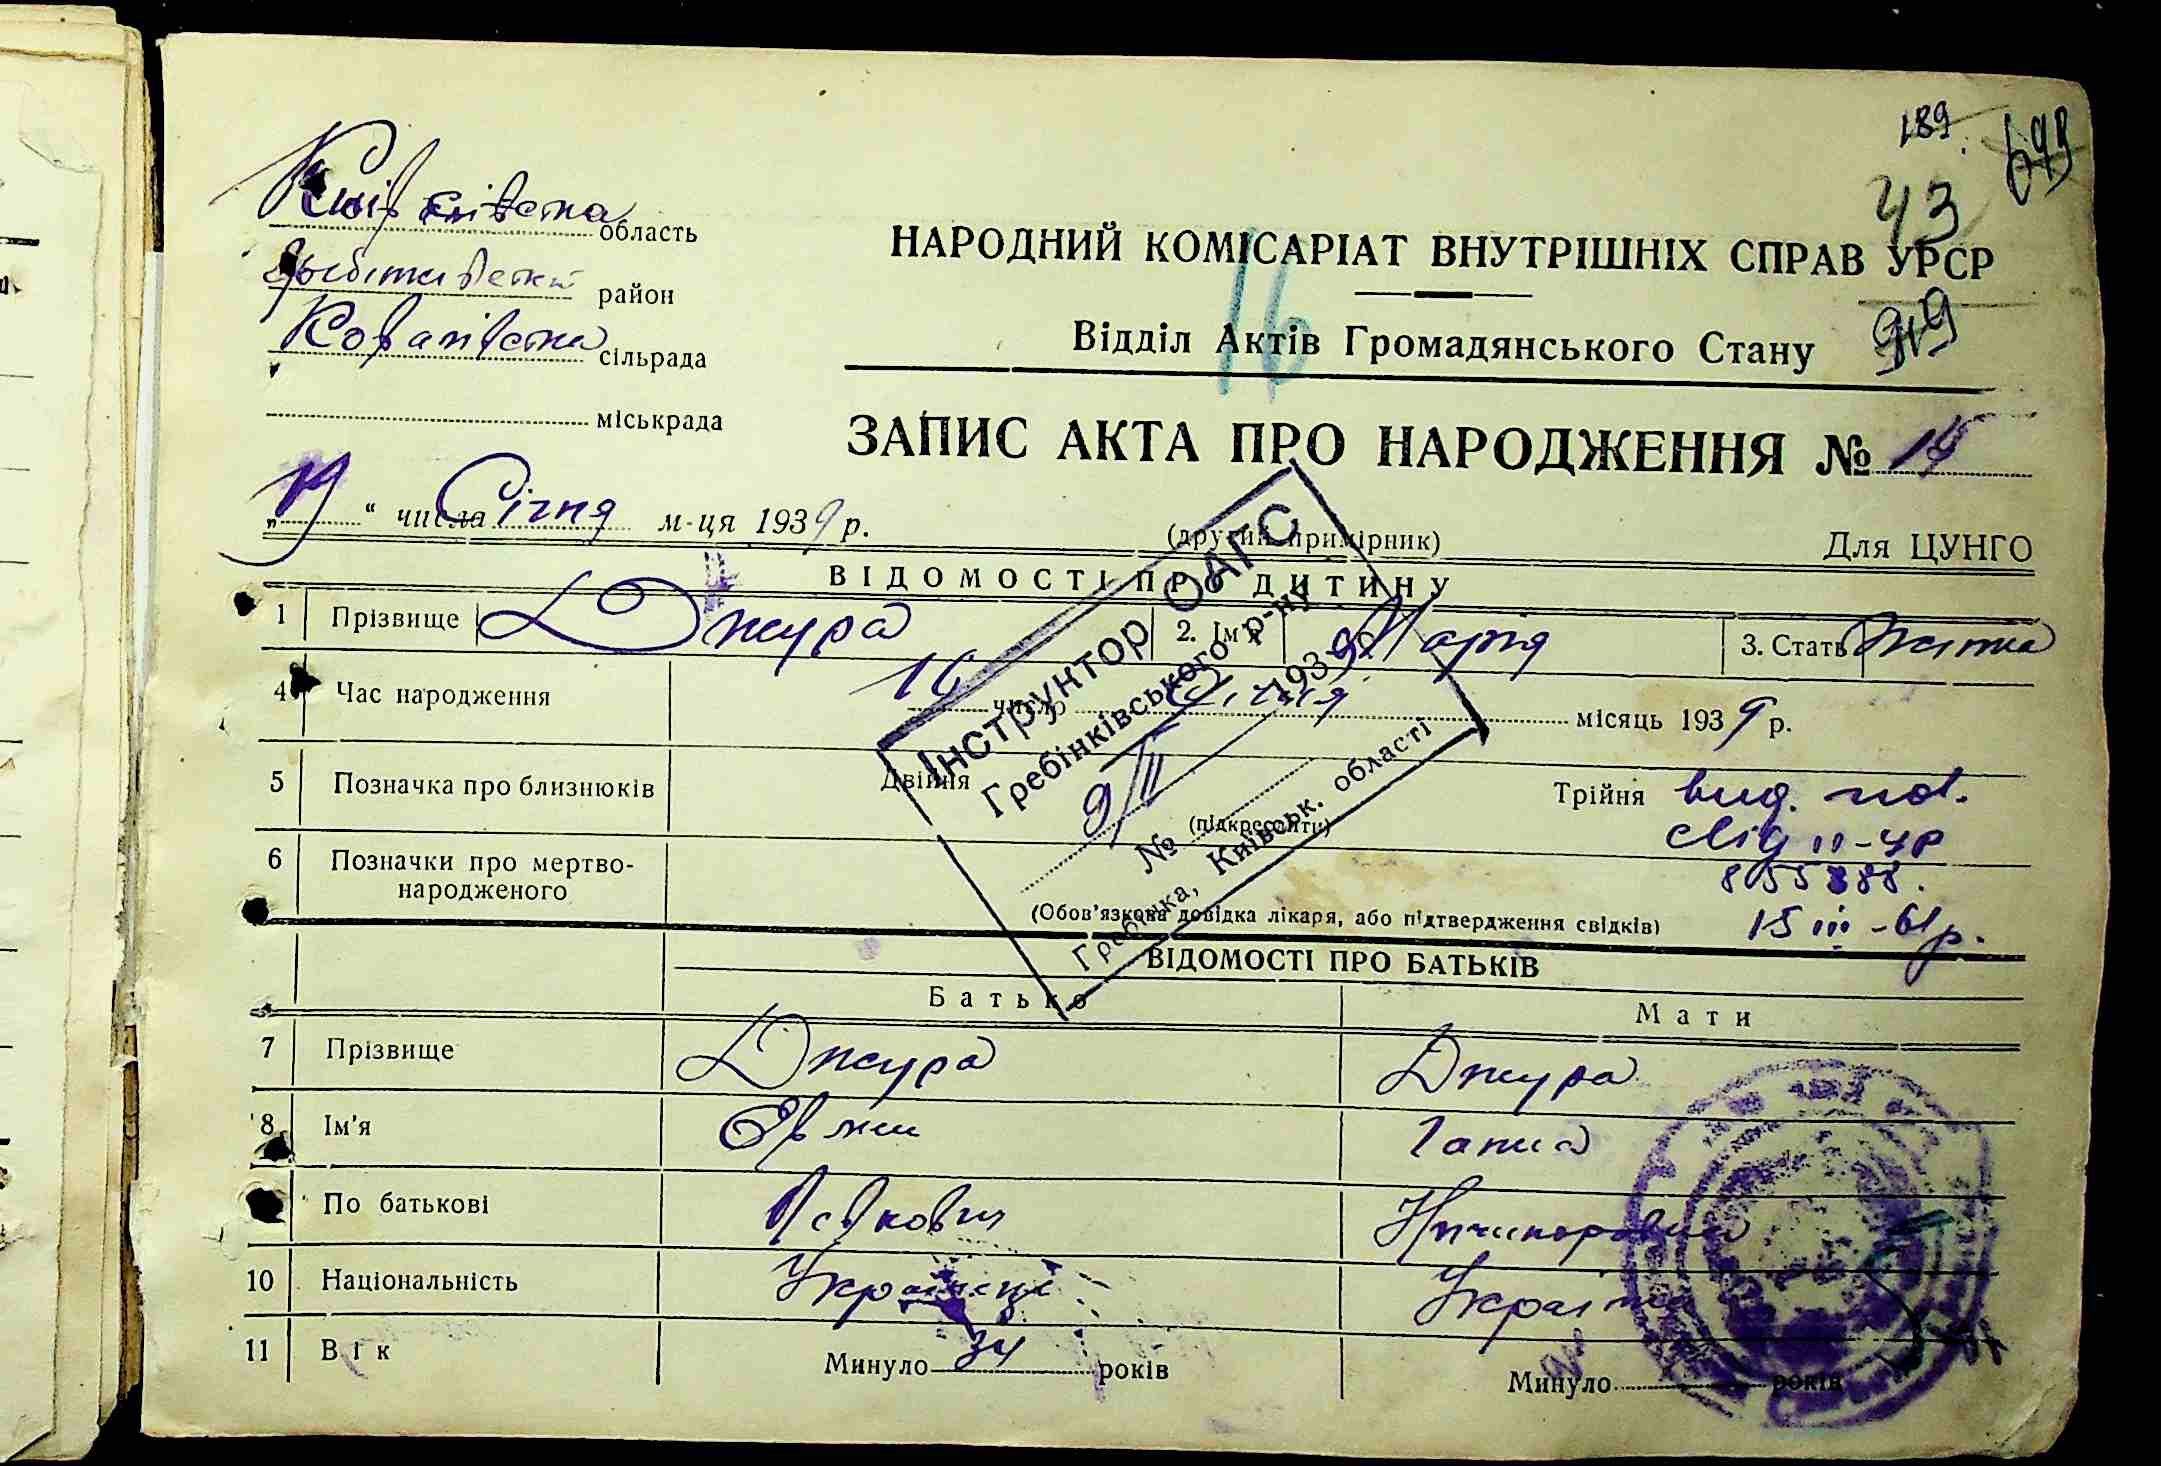 189.
699
43
Київська область
Гребінківский район
Ковалівська сільрада
міськрада
НАРОДНИЙ КОМІСАРІАТ ВНУТРІШНІХ СПРАВ УРСР
16
Відділ Актів Громадянського Стану
ЗАПИС АКТА ПРО НАРОДЖЕННЯ № 15
„19“ числа Січня м-ця 1939 р.
(другий примірник)
Для ЦУНГО
ВІДОМОСТІ ПРО ДИТИНУ
1 Прізвище Джура 2. Ім'я Марія 3. Стать
4 Час народження 16 число Січня місяць 1939 р.
Інструктор ОАГС
Гребінківського р-ну
9/II 1939
№
Гребінка, Київськ. області
5 Позначка про близнюків Двійня Трійня
(підкреслити)
вид. пов.
свід II-ЧР
855388.
15 III-61р.
6 Позначки про мертво-
народженого
(Обов'язкова довідка лікаря, або підтвердження свідків)
ВІДОМОСТІ ПРО БАТЬКІВ
Батько Мати
7 Прізвище Джура Джура
8 Ім'я Гапка
9 По батькові Ничипоровна
10 Національність Українець Українка
11 Вік Минуло 34 років Минуло років